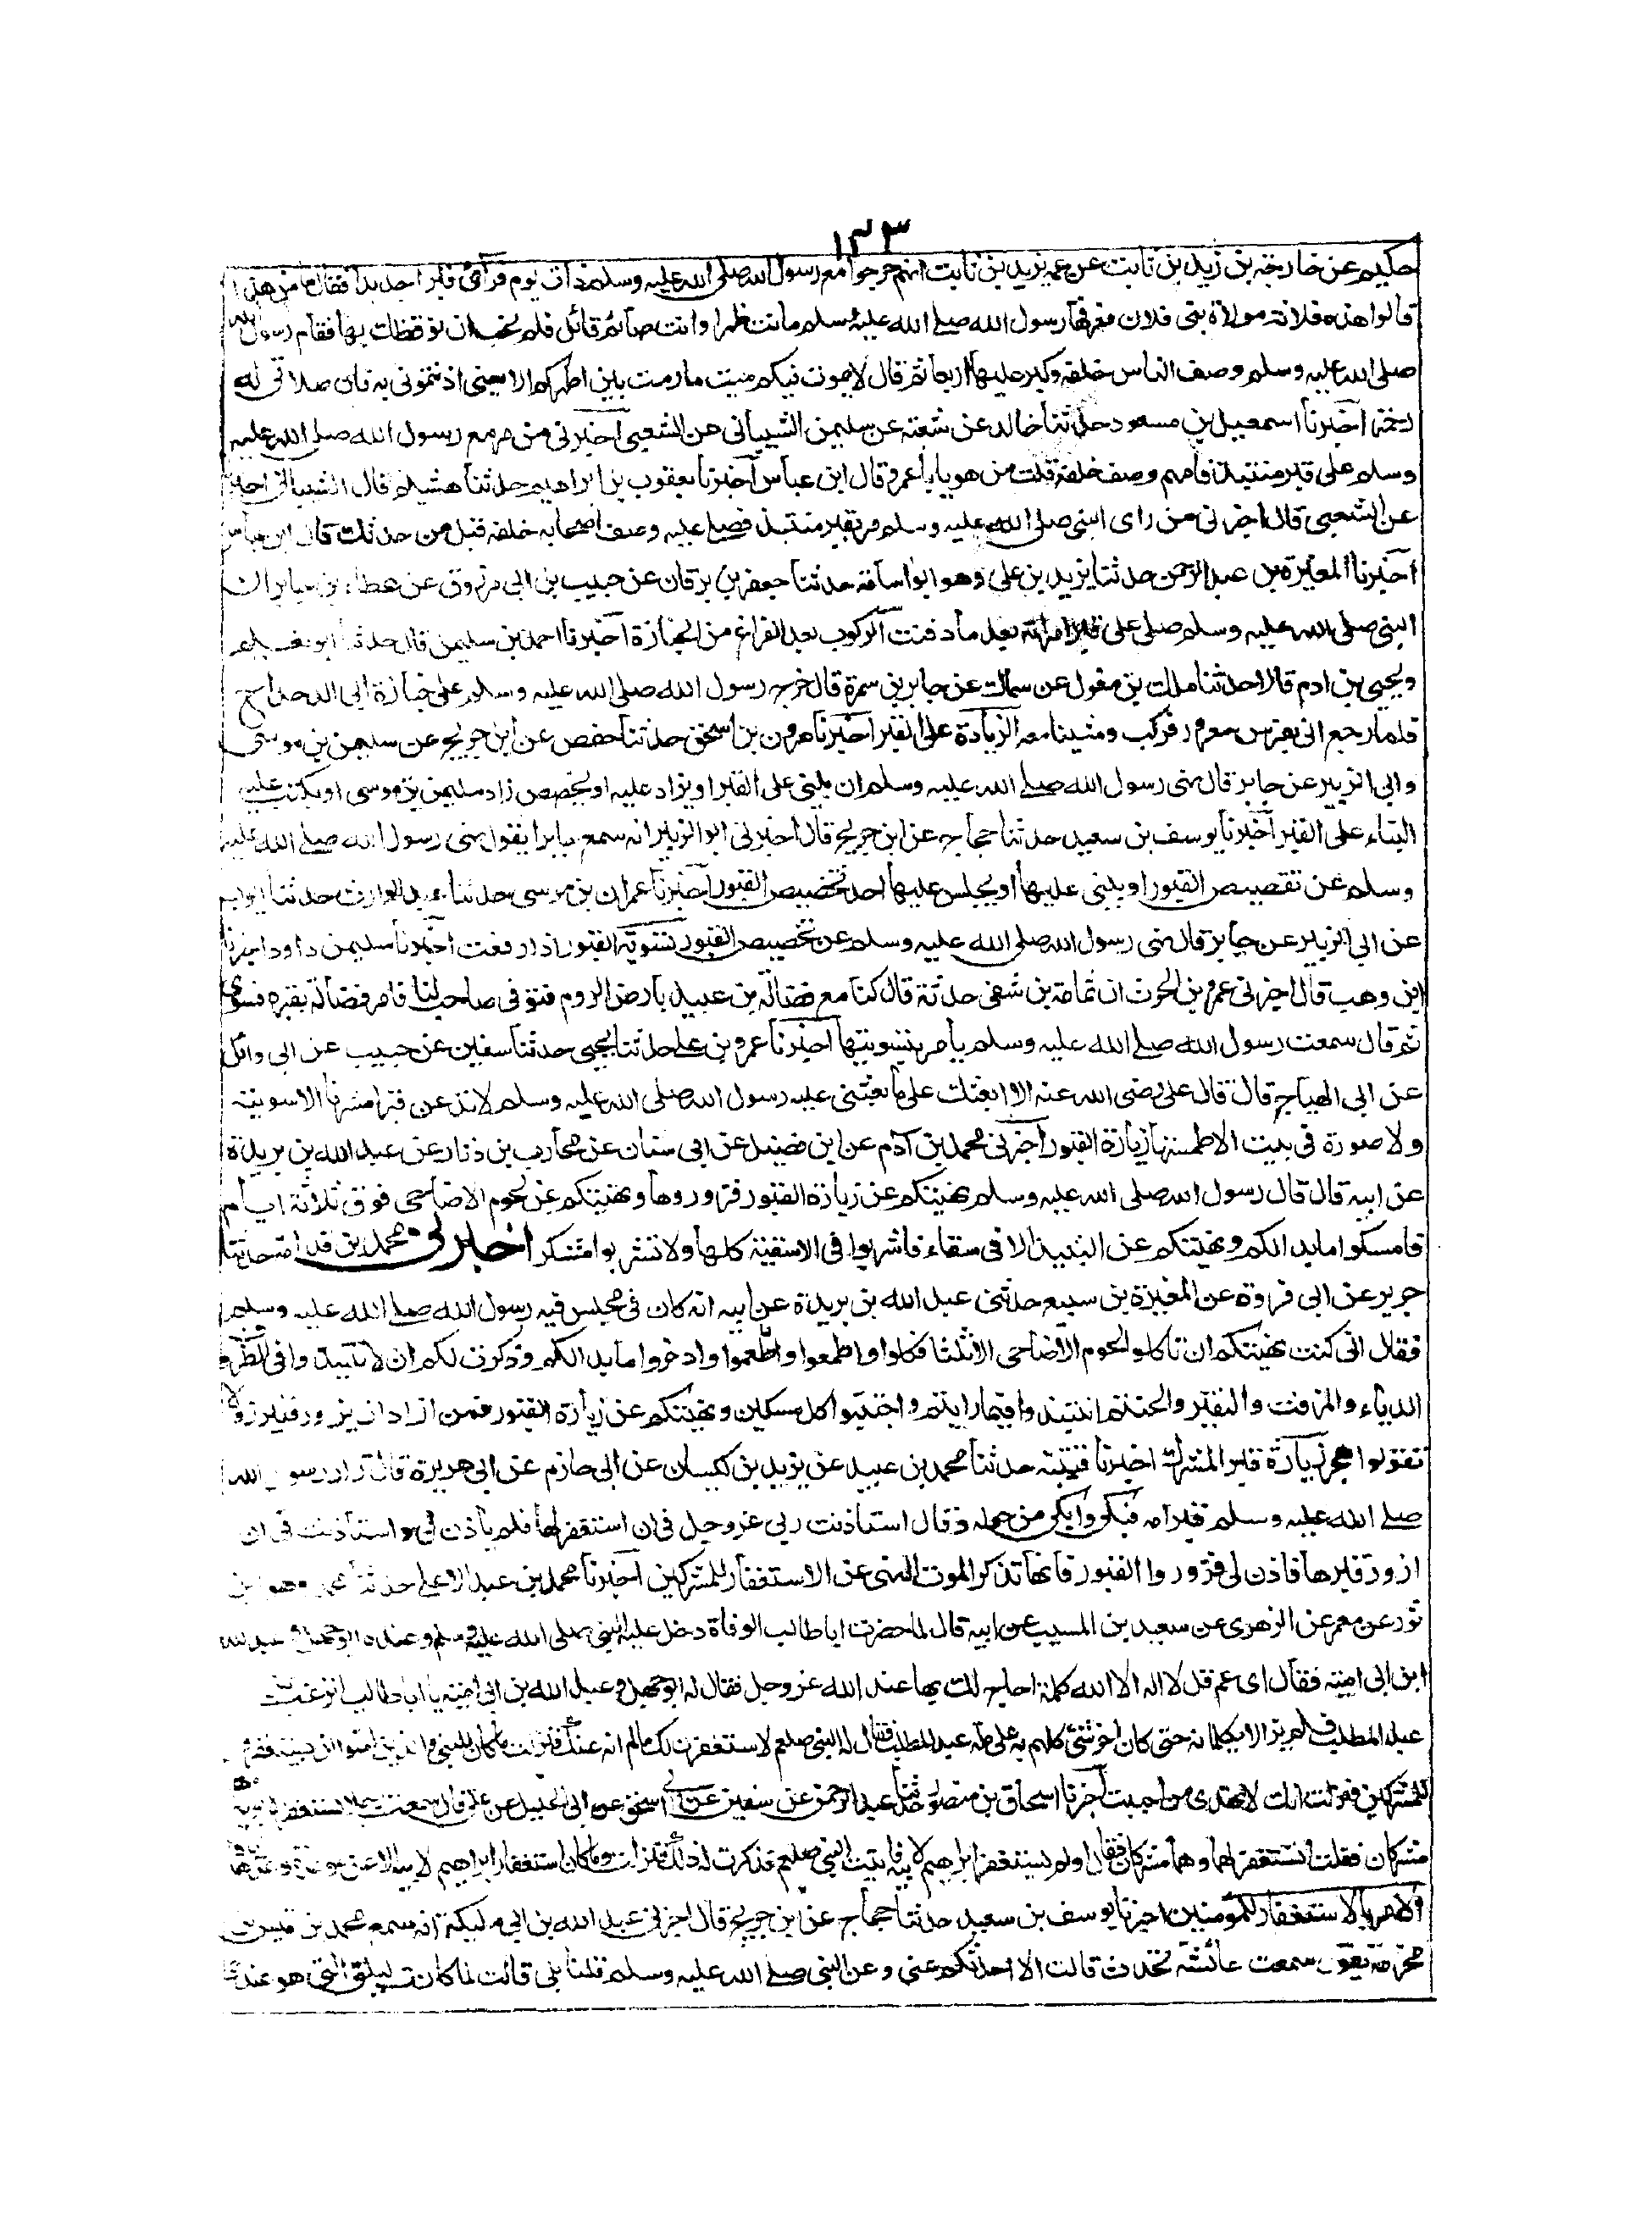 ١٣٣
حكيم عن خارجة بن زيد بن ثابت عن عمه يزيد بن ثابت انهم خرجوا مع رسول الله صلى الله عليه وسلم ذات يوم فرأى قبرا جديدا فقال ما هذا
قالوا هذه فلانة مولاة بنى فلان فعرفها رسول الله صلى الله عليه وسلم ماتت ظهرا وانت صائم قائل فلم نحب ان نوقظك بها فقام رسول الله
صلى الله عليه وسلم وصف الناس خلفه وكبر عليها اربعا ثم قال لا يموت فيكم ميت مادمت بين اظهركم الا يعنى اذنتمونى به فان صلاتى له
رحمة اخبرنا اسمعيل بن مسعود حدثنا خالد عن شعبة عن سليمن الشيبانى عن الشعبى اخبرنى من مر مع رسول الله صلى الله عليه
وسلم على قبر منتبذ فامهم وصف خلفه قلت من هو يا ابا عمرو قال ابن عباس اخبرنا يعقوب بن ابراهيم حدثنا هشيم قال الشيبانى اخبرنا
عن الشعبى قال اخبرنى من راى النبى صلى الله عليه وسلم مر بقبر منتبذ فصلى عليه وصف اصحابه خلفه قيل من حدثك قال ابن عباس
اخبرنا المغيرة بن عبد الرحمن حدثنا يزيد بن على وهو ابو اسامة حدثنا جعفر بن برقان عن حبيب بن ابى مرزوق عن عطاء عن جابر ان
النبى صلى الله عليه وسلم صلى على قبر امرأة بعد ما دفنت الركوب بعد الفراغ من الجنازة اخبرنا احمد بن سليمن قال حدثنا ابو نعيم
ويحيى بن ادم قالا حدثنا ملك بن مغول عن سماك عن جابر بن سمرة قال خرج رسول الله صلى الله عليه وسلم على جنازة ابى الدحداح
فلما رجع اتى بفرس معرورى فركب ومشينا معه الزيادة على القبر اخبرنا هرون بن اسحق حدثنا حفص عن ابن جريج عن سليمن بن موسى
وابى الزبير عن جابر قال نهى رسول الله صلى الله عليه وسلم ان يبنى على القبر او يزاد عليه او يجصص زاد سليمن بن موسى او يكتب عليه
البناء على القبر اخبرنا يوسف بن سعيد حدثنا حجاج عن ابن جريج قال اخبرنى ابو الزبير انه سمع جابرا يقول نهى رسول الله صلى الله عليه
وسلم عن تقصيص القبور او يبنى عليها او يجلس عليها احد تجصيص القبور اخبرنا عمران بن موسى حدثنا عبد الوارث حدثنا ايوب
عن ابى الزبير عن جابر قال نهى رسول الله صلى الله عليه وسلم عن تجصيص القبور تسوية القبور اذا رفعت اخبرنا سليمن داود اخبرنا
ابن وهب قال اخبرنى عمرو بن الحرث ان ثمامة بن شفى حدثه قال كنا مع فضالة بن عبيد بارض الروم فتوفى صاحب لنا فامر فضالة بقبره فسوى
ثم قال سمعت رسول الله صلى الله عليه وسلم يأمر بتسويتها اخبرنا عمرو بن على حدثنا يحيى حدثنا سفين عن حبيب عن ابى وائل
عن ابى الهياج قال قال على رضى الله عنه الا ابعثك على ما بعثنى عليه رسول الله صلى الله عليه وسلم لا تدعن قبرا مشرفا الا سويته
ولا صورة فى بيت الا طمستها زيارة القبور اخبرنى محمد بن آدم عن ابن فضيل عن ابى سنان عن محارب بن دثار عن عبد الله بن بريدة
عن ابيه قال قال رسول الله صلى الله عليه وسلم نهيتكم عن زيارة القبور فزوروها ونهيتكم عن لحوم الاضاحى فوق ثلاثة ايام
فامسكوا ما بدا لكم ونهيتكم عن النبيذ الا فى سقاء فاشربوا فى الاسقية كلها ولا تشربوا مسكرا اخبرنى محمد بن قدامة حدثنا
جرير عن ابى فروة عن المغيرة بن سبيع حدثنى عبد الله بن بريدة عن ابيه انه كان فى مجلس فيه رسول الله صلى الله عليه وسلم
فقال انى كنت نهيتكم ان تاكلوا لحوم الاضاحى الا ثلثا فكلوا واطعموا وادخروا ما بدا لكم وذكرت لكم ان لا تنتبذوا فى الظروف
الدباء والمزفت والنقير والحنتم انتبذوا فيما رايتم واجتنبوا كل مسكر ونهيتكم عن زيارة القبور فمن اراد ان يزور فليزر ولا
تقولوا هجرا زيارة قبر المشرك اخبرنا قتيبة حدثنا محمد بن عبيد عن يزيد بن كيسان عن ابى حازم عن ابى هريرة قال زار رسول الله
صلى الله عليه وسلم قبر امه فبكى وابكى من حوله وقال استاذنت ربى عز وجل فى ان استغفر لها فلم يأذن لى واستأذنت فى ان
ازور قبرها فاذن لى فزوروا القبور فانها تذكر الموت النهى عن الاستغفار للمشركين اخبرنا محمد بن عبد الاعلى حدثنا محمد وهو ابن
ثور عن معمر عن الزهرى عن سعيد بن المسيب عن ابيه قال لما حضرت ابا طالب الوفاة دخل عليه النبى صلى الله عليه وسلم وعنده ابو جهل وعبد الله
ابن ابى امية فقال اى عم قل لا اله الا الله كلمة احاج لك بها عند الله عز وجل فقال له ابو جهل وعبد الله بن ابى امية يا ابا طالب اترغب عن ملة
عبد المطلب فلم يزالا يكلمانه حتى كان اخر شئ كلمهم به على ملة عبد المطلب فقال له النبى صلعم لاستغفرن لك مالم انه عنك فنزلت ما كان للنبى والذين امنوا ان يستغفروا
للمشركين ونزلت انك لا تهدى من احببت اخبرنا اسحاق بن منصور حدثنا عبد الرحمن عن سفين عن ابى اسحق عن ابى الخليل عن على قال سمعت رجلا يستغفر لابويه وهما
مشركان فقلت اتستغفر لهما وهما مشركان فقال اولم يستغفر ابراهيم لابيه فاتيت النبى صلعم فذكرت له ذلك فنزلت وما كان استغفار ابراهيم لابيه الا عن موعدة وعدها اياه
الامر بالاستغفار للمؤمنين اخبرنا يوسف بن سعيد حدثنا حجاج عن ابن جريج قال اخبرنى عبد الله بن ابى مليكة انه سمع محمد بن قيس بن
مخرمة يقول سمعت عائشة تحدث قالت الا احدثكم عنى وعن النبى صلى الله عليه وسلم قلنا بلى قالت لما كانت ليلتى التى هو عندى